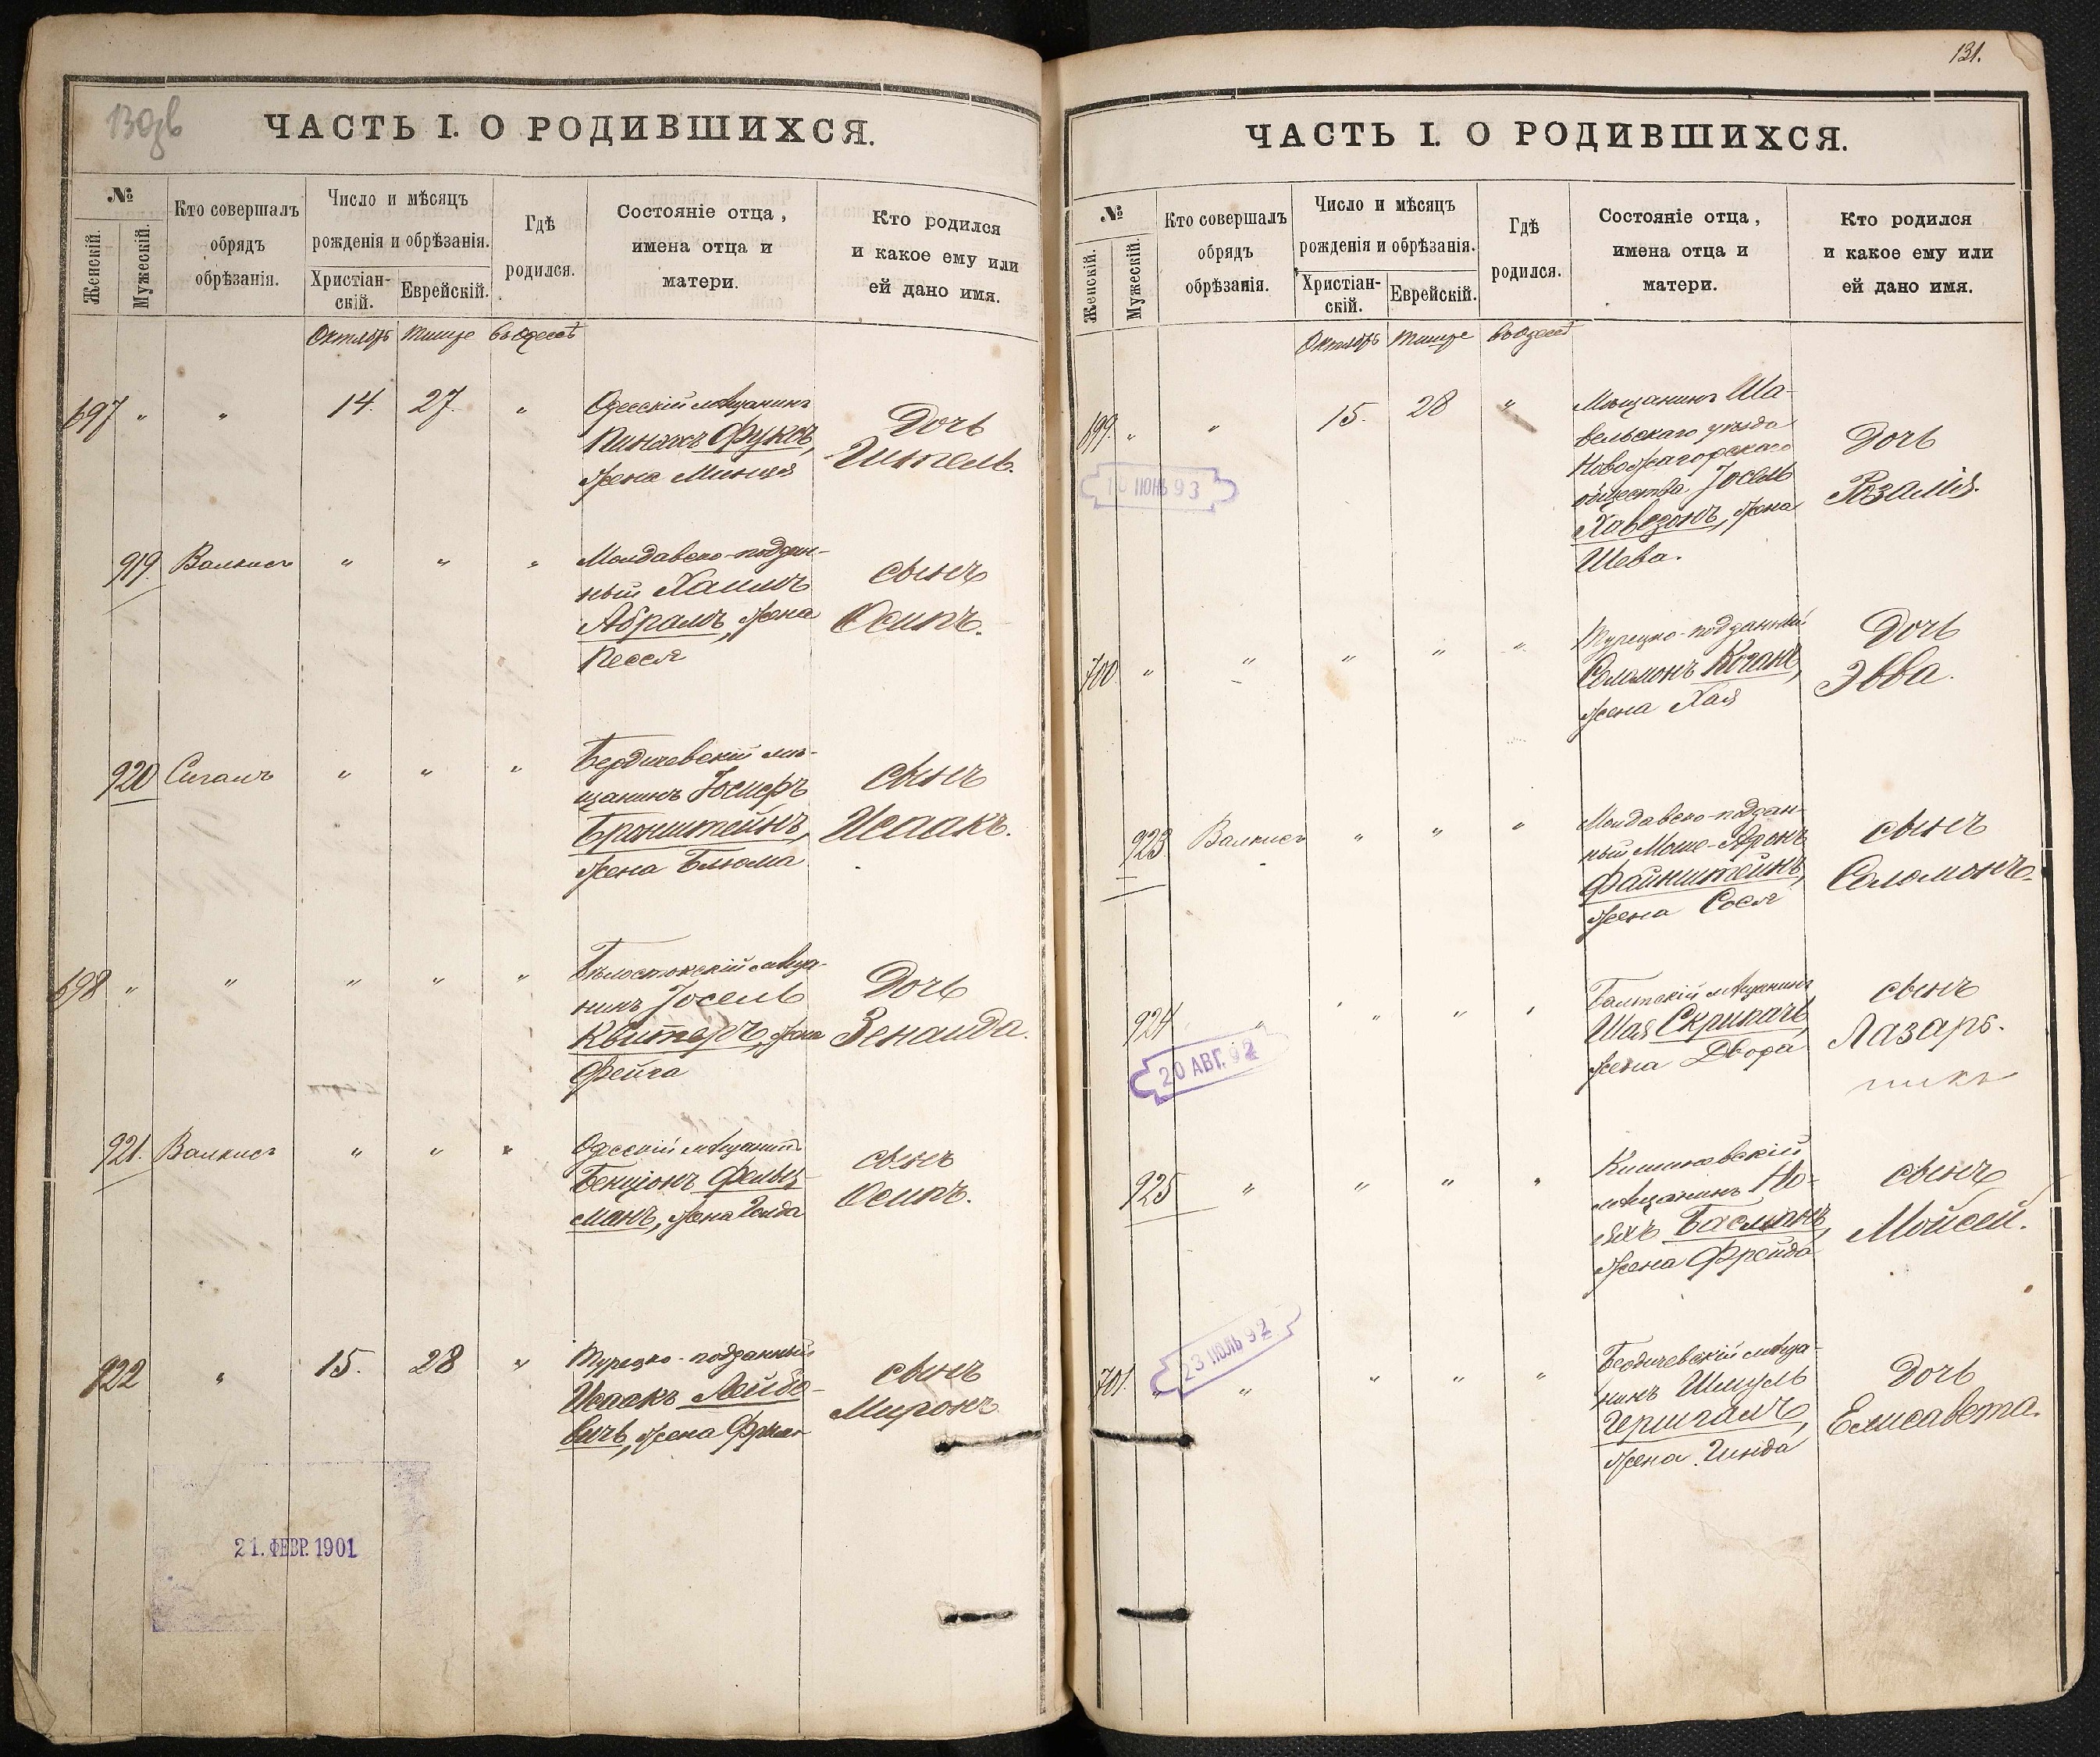 130зв
ЧАСТЬ I. О РОДИВШИХСЯ.
№
Женскій.
Мужескій.
Кто совершалъ
обрядъ
обрѣзанія.
Число и мѣсяцъ
рожденія и обрѣзанія.
Христіан-
скій.
Еврейскій.
Гдѣ
родился.
Состояніе отца,
имена отца и
матери.
Кто родился
и какое ему или
ей дано имя.
Октябрь Тишре въ Одессѣ
697 " " 14. 27. "
Одесскій мѣщанинъ
Пинхасъ Фуксъ,
жена Минця
Дочь
Гитель.
919. Валкисъ " " "
Молдавско-поддан-
ный Хаимъ
Абрамъ, жена
Песся
сынъ
Осипъ.
920 Сигалъ " " "
Бердичевскій мѣ-
щанинъ Іосифъ
Бронштейнъ,
жена Блюма
сынъ
Исаакъ.
698 " " " " "
Бѣлостокскій мѣща-
нинъ Іосель
жена
Фейга
Дочь
Зенаида.
921. Валкисъ " " "
Одесскій мѣщанинъ
Бенціонъ Фельц-
манъ, жена Голда
сынъ
Осипъ.
922 " 15. 28 "
Турецко-подданный
Исаакъ Лейбо-
вичъ, жена
сынъ
Миронъ
21. ФЕВР. 1901
131.
ЧАСТЬ I. О РОДИВШИХСЯ.
№
Женскій.
Мужескій.
Кто совершалъ
обрядъ
обрѣзанія.
Число и мѣсяцъ
рожденія и обрѣзанія.
Христіан-
скій.
Еврейскій.
Гдѣ
родился.
Состояніе отца,
имена отца и
матери.
Кто родился
и какое ему или
ей дано имя.
Октябрь Тишре въ Одессѣ
699. " " 15. 28 "
10 ИЮНЬ 93
Мѣщанинъ Ша-
вельскаго уѣзда
Новожагорскаго
общества Іосель
Хавезонъ, жена
Шева.
Дочь
Розалія.
700 " " " " "
Турецко-подданный
Соломонъ Коганъ,
жена Хая
Дочь
Эвва.
923. Валкисъ " " "
Молдавско-поддан-
ный Моше-Аронъ
Файнштейнъ,
жена Сося
сынъ
Соломонъ.
924 " " " "
20 АВГ. 92
Балтскій мѣщанинъ
Шая Скрипачъ,
жена Двора
сынъ
Лазарь.
925 " " " "
Кишиневскій
мѣщанинъ Но-
яхъ Басманъ,
жена Фрейда
сынъ
Мойсей.
701. " " " " "
23 ИЮЛЬ 92
Бердичевскій мѣща-
нинъ Шмуль
жена Гинда
Дочь
Елисавета.